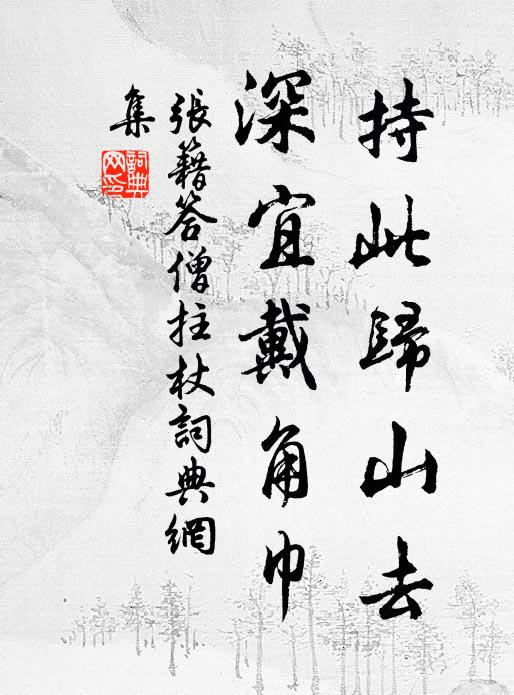 持此歸山去
深宜戴角巾
張籍答僧拄杖詞典網
集
詞典
网印